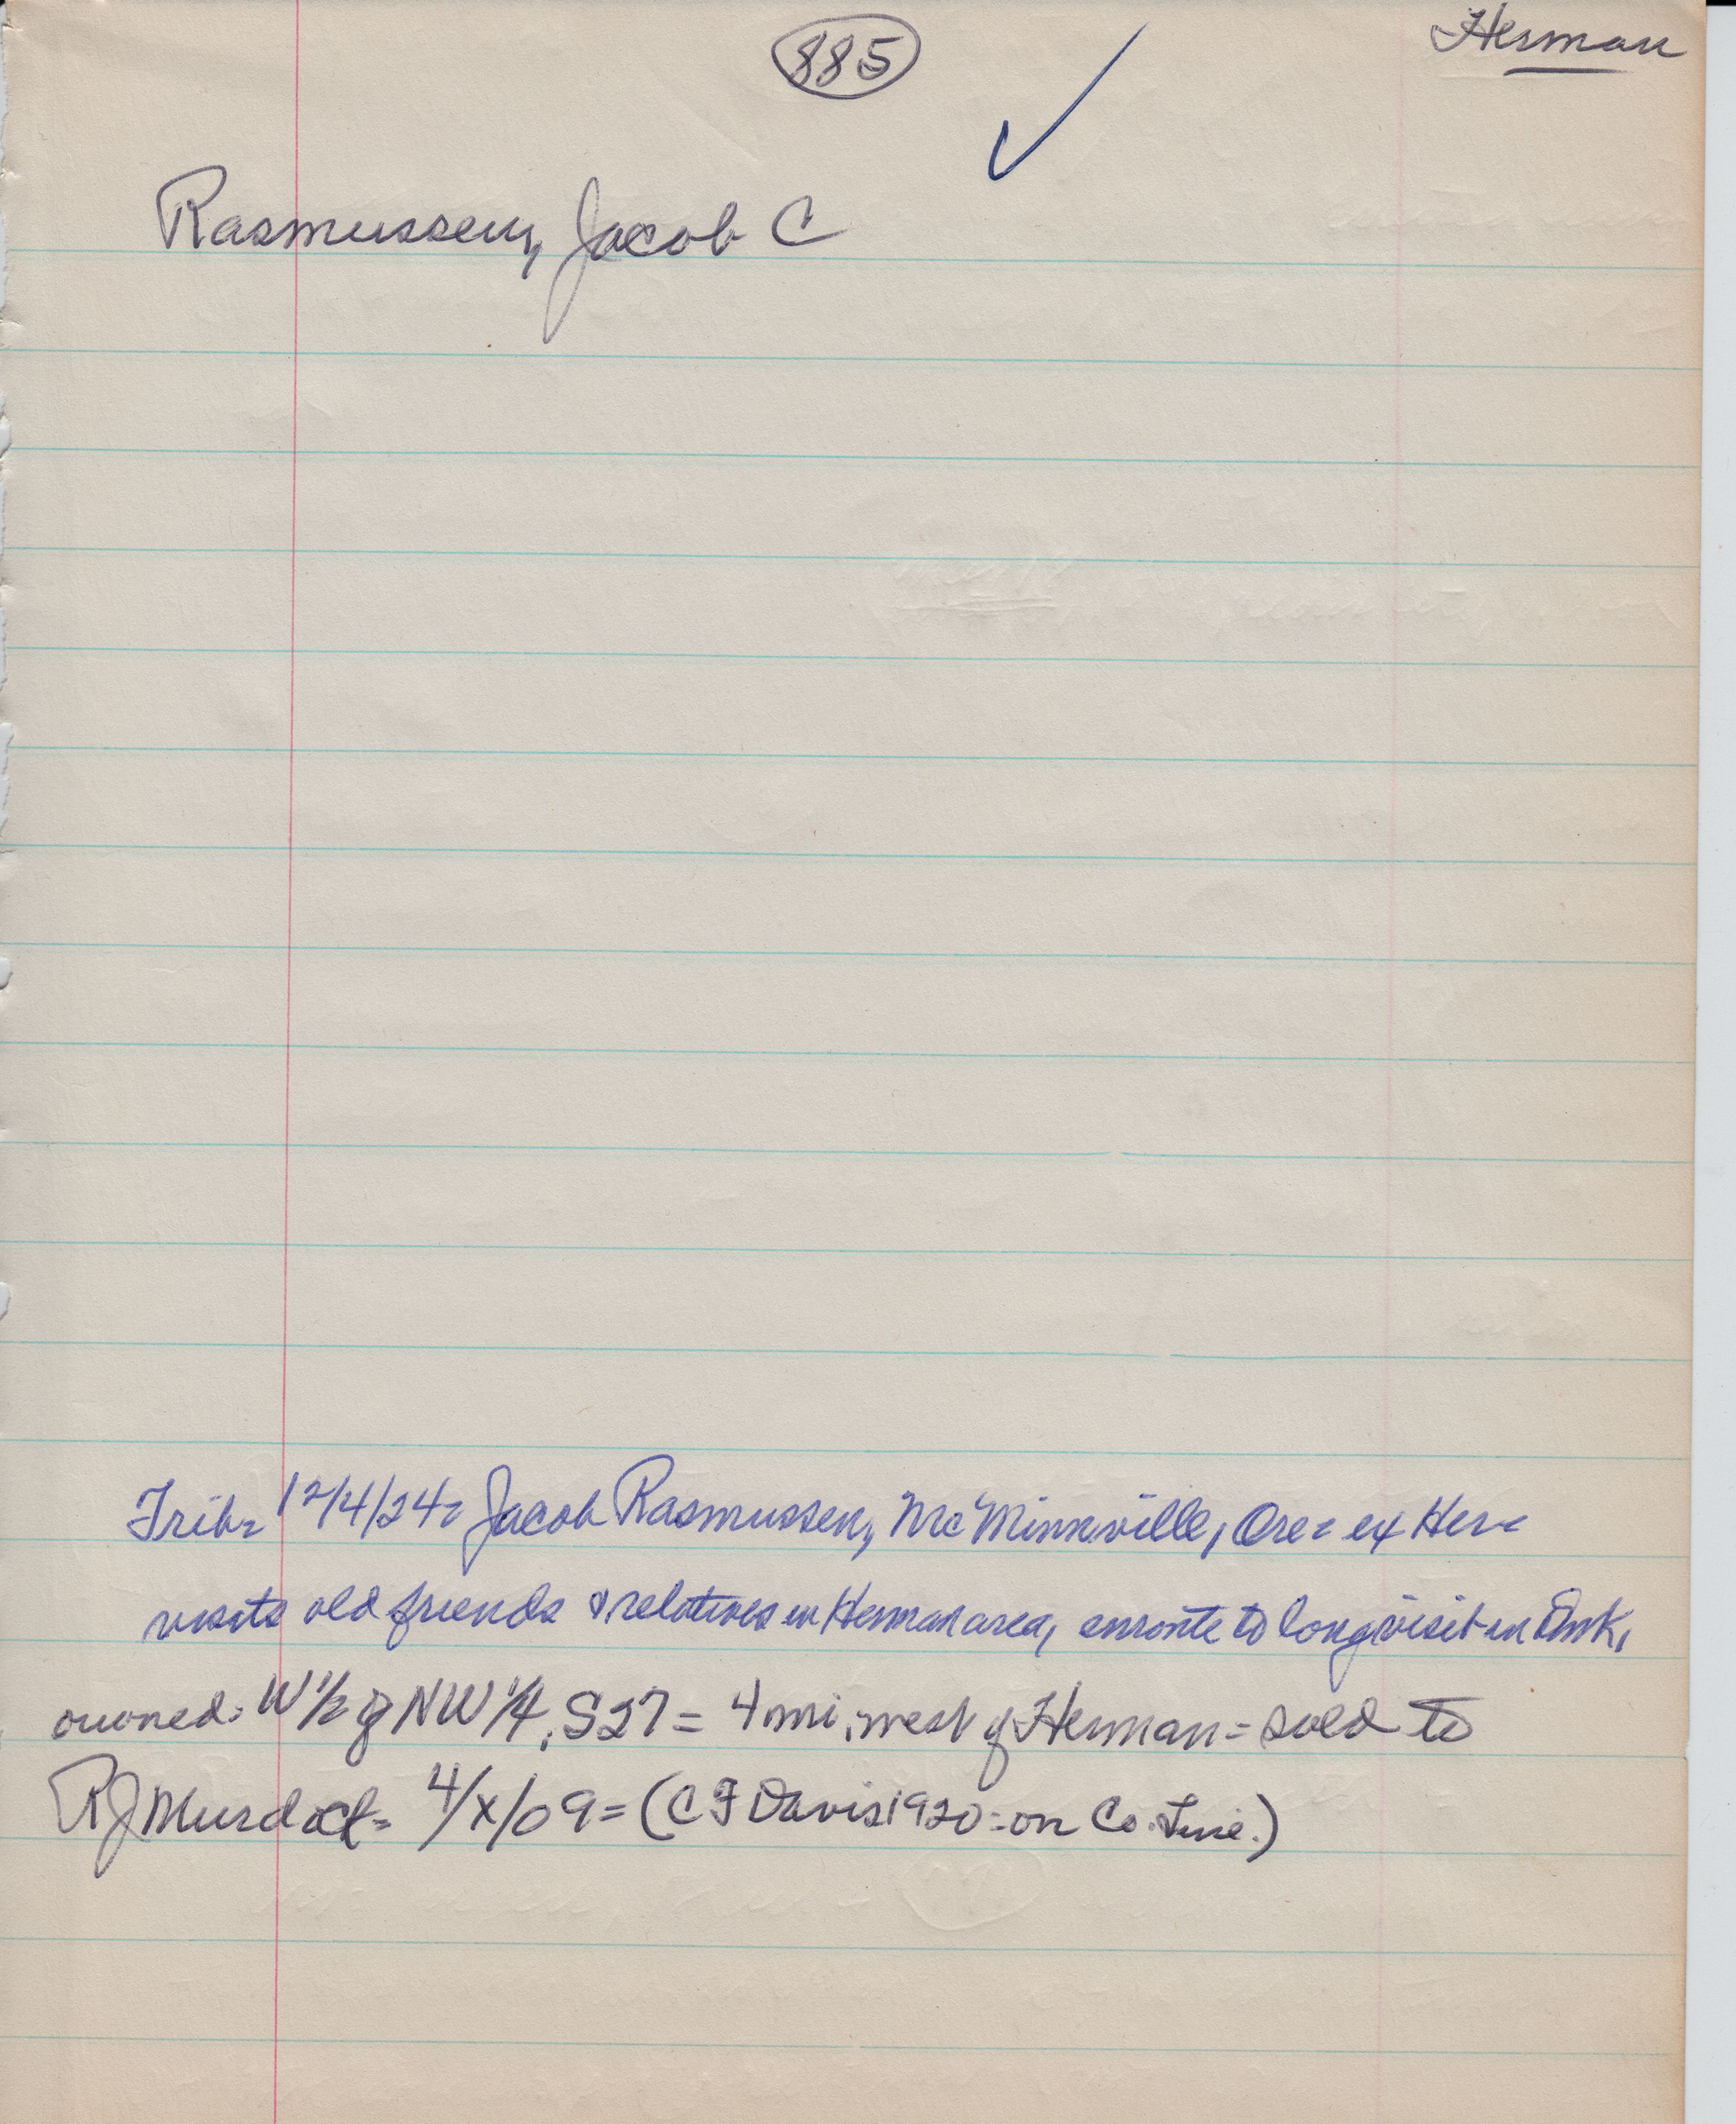 885
Herman
Rasmussen, Jacob C
Trib= 12/4/24= Jacob Rasmussen, McMinnville, Ore= ex Her=
visits old friends & relatives in Herman area, enroute to long visit in
owned: W 1/2 of NW 1/4, S27 = 4 mi, west of Herman = sold to
RJ 4/x/09 = (C F Davis 1920 = on Co. Line.)